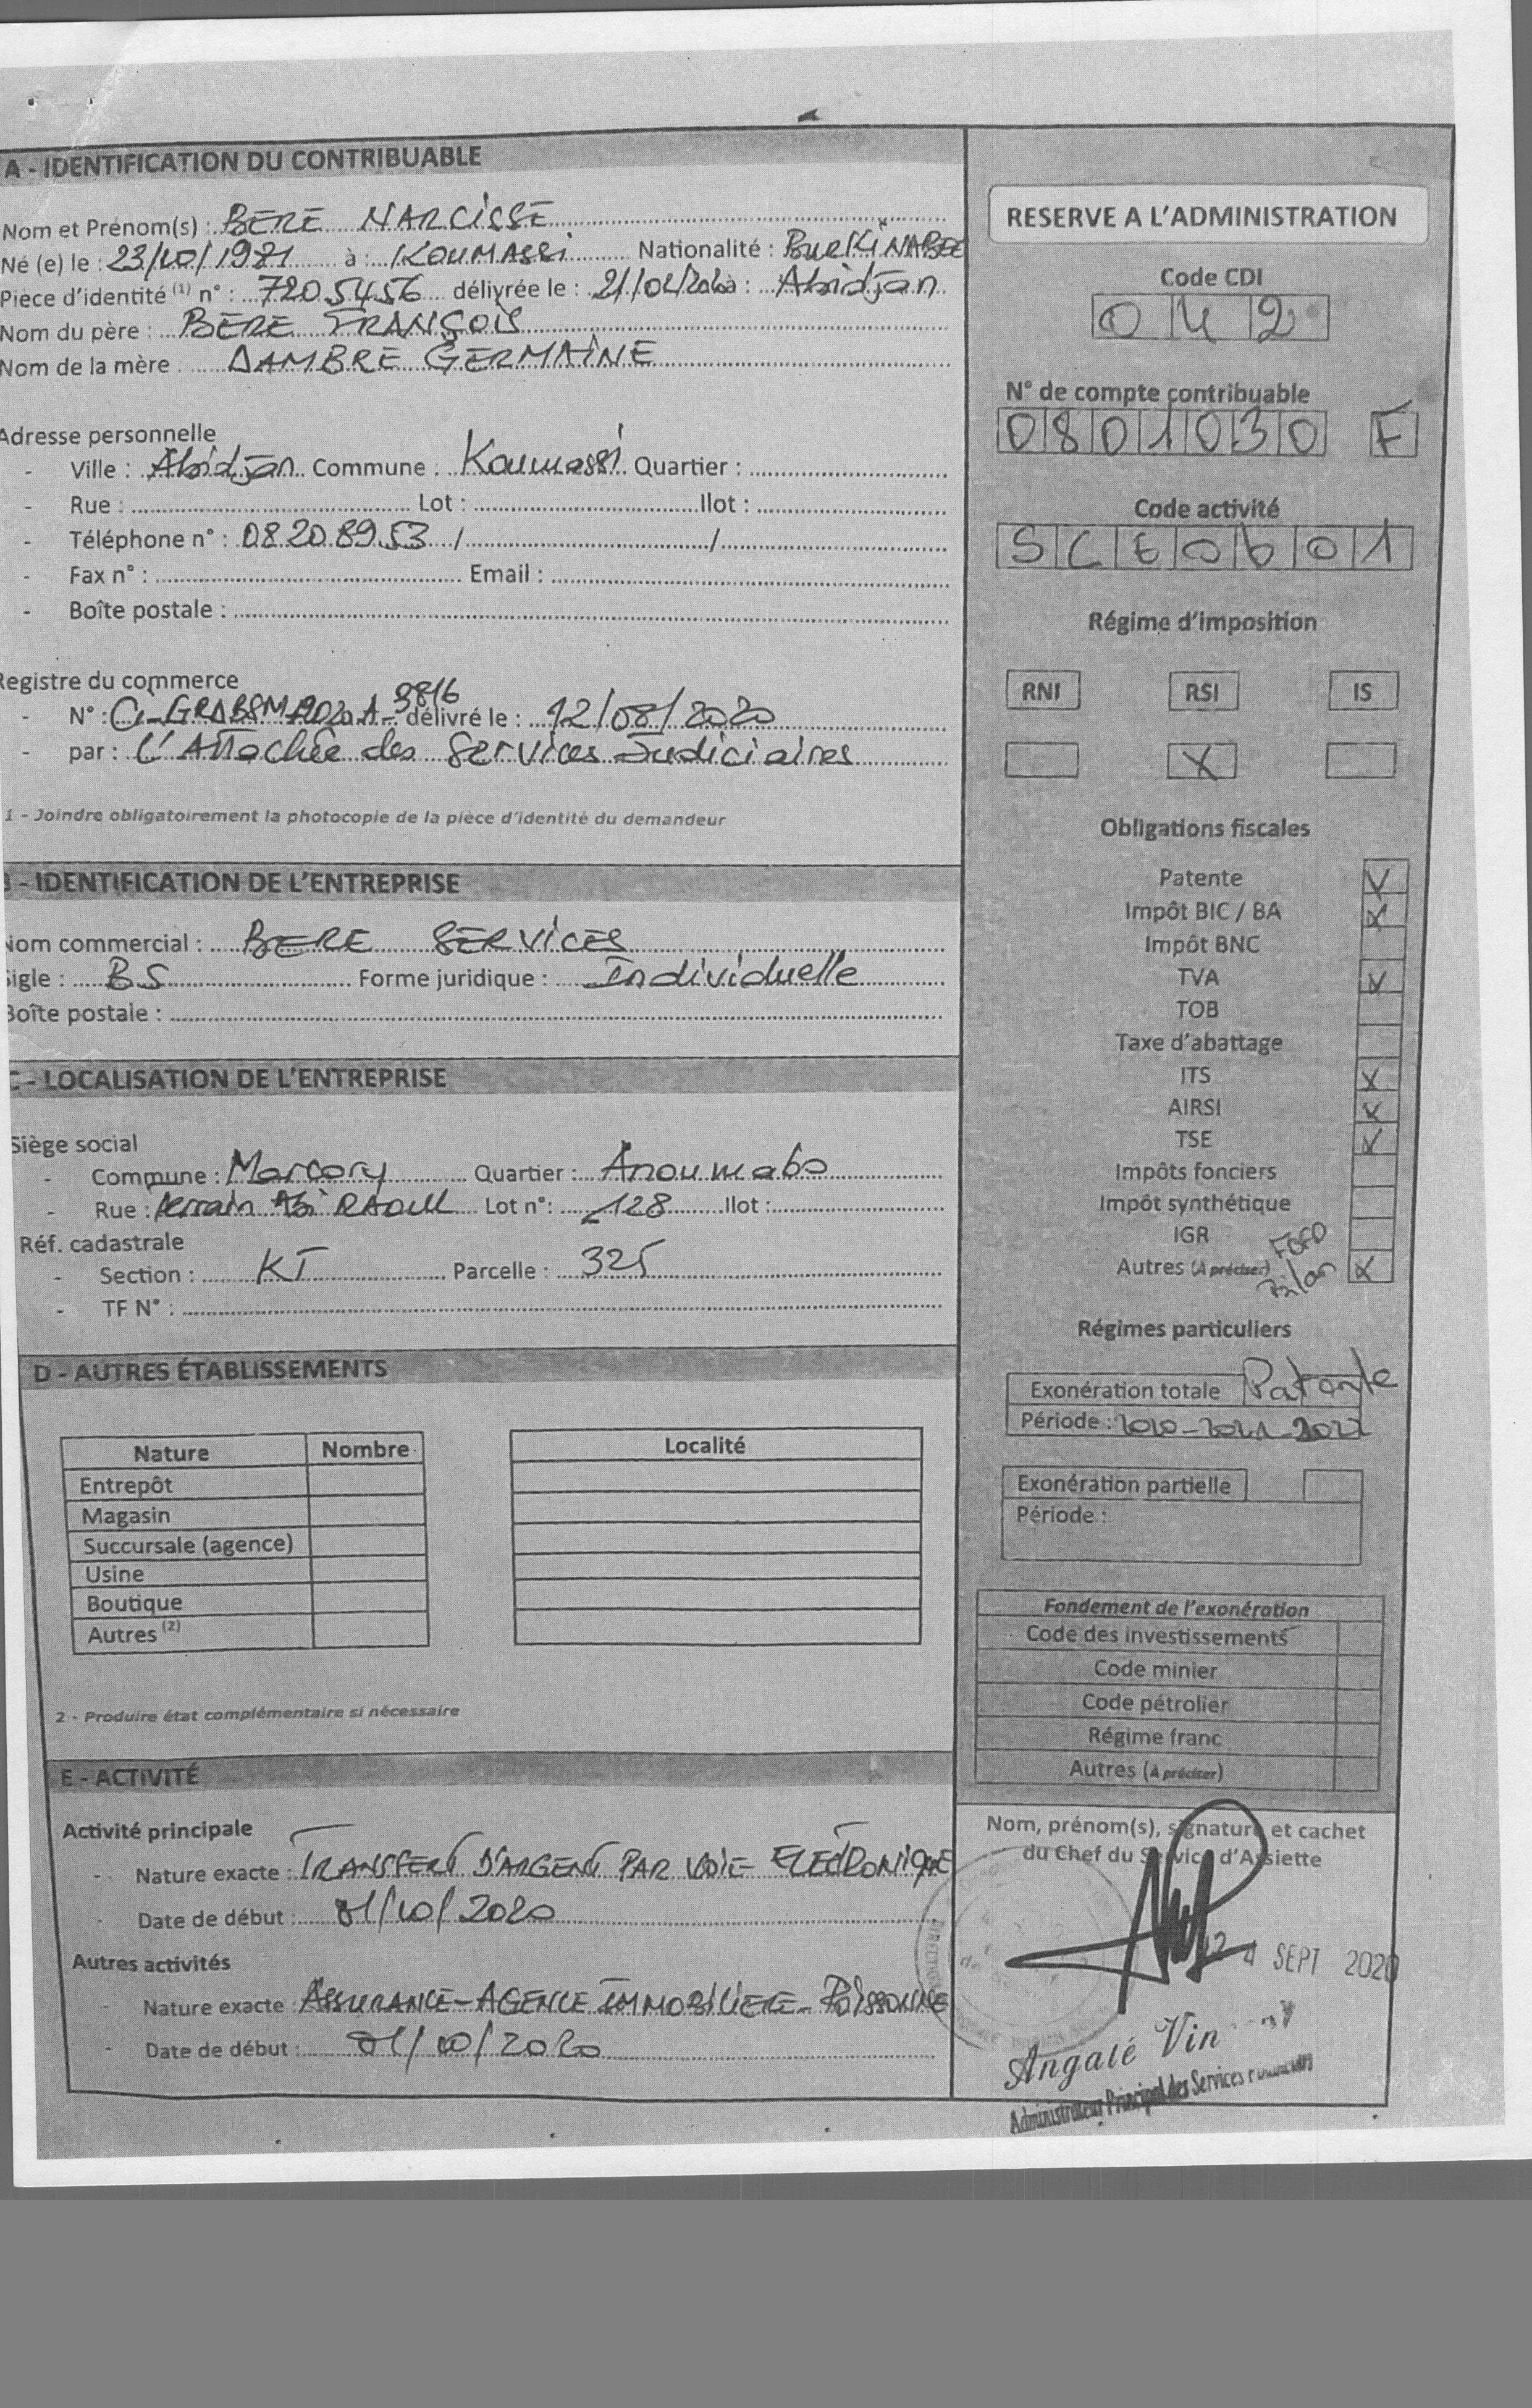 A - IDENTIFICATION DU CONTRIBUABLE
Nom et Prénom(s) : BERE NARCISSE
Né (e) le : 23/10/1981 à : KOUMASSI Nationalité : BURKINABEE
Pièce d'identité (1) n° : 7205456 délivrée le : à : Abidjan
Nom du père : BERE FRANÇOIS
Nom de la mère : DAMBRE GERMAINE
Adresse personnelle
- Ville : Abidjan Commune : Koumassi Quartier :
- Rue : Lot : Ilot :
- Téléphone n° : 08.20.89.53 / /
- Fax n° : Email :
- Boîte postale :
Registre du commerce
- N° : 3816 délivré le : 12/08/2020
- par : L'Attachée des Services Judiciaires
1 - Joindre obligatoirement la photocopie de la pièce d'identité du demandeur
B - IDENTIFICATION DE L'ENTREPRISE
Nom commercial : BERE SERVICES
Sigle : B.S Forme juridique : Individuelle
Boîte postale :
C - LOCALISATION DE L'ENTREPRISE
Siège social
- Commune : Marcory Quartier : Anoumabo
- Rue : terrain RAOUL Lot n° : 128 Ilot :
Réf. cadastrale
- Section : KT Parcelle : 325
- TF N° :
D - AUTRES ÉTABLISSEMENTS
Nature Nombre Localité
Entrepôt
Magasin
Succursale (agence)
Usine
Boutique
Autres (2)
2 - Produire état complémentaire si nécessaire
E - ACTIVITÉ
Activité principale
- Nature exacte : TRANSFERT D'ARGENT PAR VOIE ELECTRONIQUE
- Date de début : 01/10/2020
Autres activités
- Nature exacte : ASSURANCE - AGENCE IMMOBILIERE -
- Date de début : 01/10/2020
RESERVE A L'ADMINISTRATION
Code CDI
0 4 2
N° de compte contribuable
0 8 0 1 0 3 0 F
Code activité
S C E 0 6 0 1
Régime d'imposition
RNI RSI IS
X
Obligations fiscales
Patente X
Impôt BIC / BA X
Impôt BNC
TVA X
TOB
Taxe d'abattage
ITS X
AIRSI X
TSE X
Impôts fonciers
Impôt synthétique
IGR
Autres (A préciser) Bilan X
Régimes particuliers
Exonération totale Patente
Période : 2020-2021-2022
Exonération partielle
Période :
Fondement de l'exonération
Code des investissements
Code minier
Code pétrolier
Régime franc
Autres (A préciser)
Nom, prénom(s), signature et cachet
du Chef du Service d'Assiette
24 SEPT 2020
Angalé
Administrateur Principal des Services